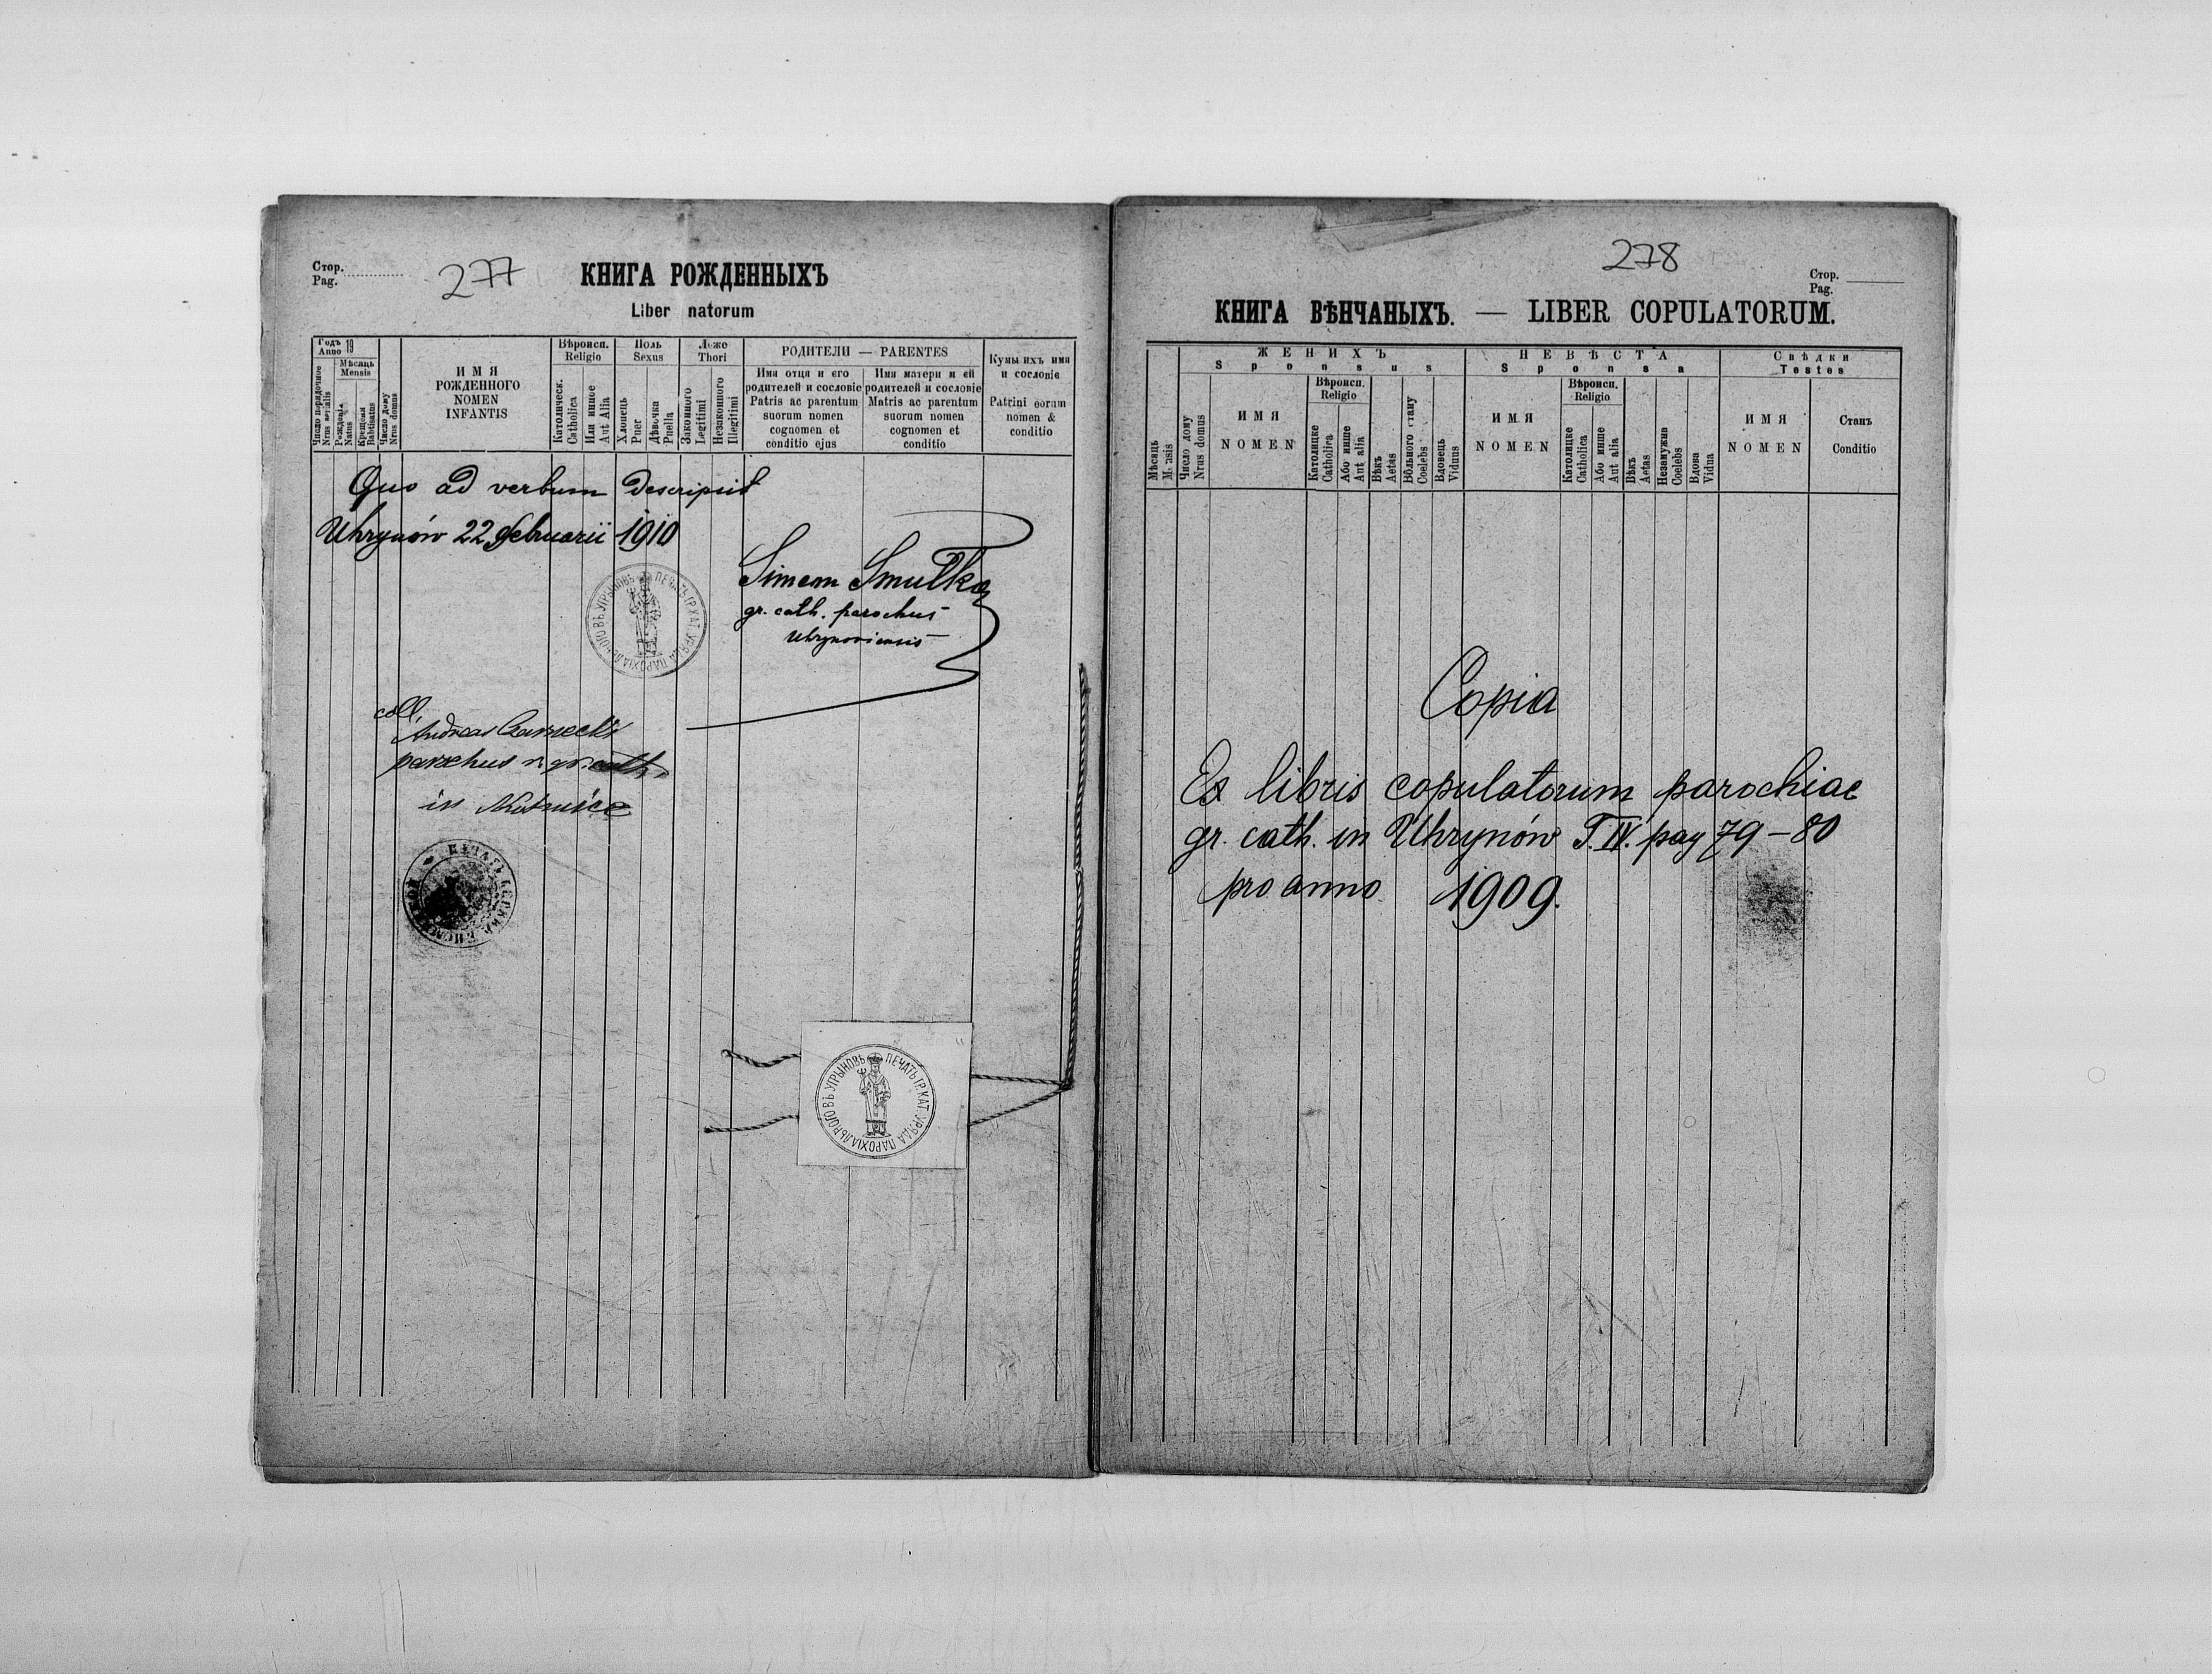 Стор.
Pag.
277
КНИГА РОЖДЕННЫХЪ
Liber natorum
Годъ
Anno 19
Мѣсяць
Mensis
Число порядочное
Nrus serialis
Рожденія
Natus
Крещенія
Babtisatus
Число дому
Nrus domus
ИМЯ
РОЖДЕННОГО
NOMEN
INFANTIS
Вѣроисп.
Religio
Католическ.
Catholica
Или инное
Aut Alia
Поль
Sexus
Хлопець
Puer
Дѣвочка
Puella
Ложе
Thori
Законного
Legitimi
Незаконного
Illegitimi
РОДИТЕЛИ — PARENTES
Имя отця и его
родителей и сословіе
Patris ac parentum
suorum nomen
cognomen et
conditio ejus
Имя матери и ей
родителей и сословіе
Matris ac parentum
suorum nomen
cognomen et
conditio
Кумы ихъ имя
и сословіе
Patrini eorum
nomen &
conditio
Quo ad verbum descripsit
Uhrynów 22 februarii 1910
Simeon Smulka
gr. cath. parochus
Uhrynoviensis
ПЕЧАТЬ ГР. КАТ. УРЯДА ПАРОХІАЛЬНОГО ВЪ УГРЫНОВЪ
coll.
Andreas
parochus r. gr. cath.
in
ПЕЧАТЬ ГР. КАТ. УРЯДА ПАРОХІАЛЬНОГО ВЪ УГРЫНОВЪ
278
Стор.
Pag.
КНИГА ВѢНЧАНЫХЪ. — LIBER COPULATORUM.
Мѣсяць
Mensis
Число дому
Nrus domus
ЖЕНИХЪ
Sponsus
ИМЯ
NOMEN
Вѣроисп.
Religio
Католицке
Catholica
Або инше
Aut alia
Вѣкъ
Aetas
Вôльного стану
Coelebs
Вдовець
Viduus
НЕВѢСТА
Sponsa
ИМЯ
NOMEN
Вѣроисп.
Religio
Католицке
Catholica
Або инше
Aut alia
Вѣкъ
Aetas
Незамужна
Coelebs
Вдова
Vidua
Свѣдки
Testes
ИМЯ
NOMEN
Станъ
Conditio
Copia
Ex libris copulatorum parochiae
gr. cath. in Uhrynów T. IV. pag 79-80
pro anno 1909.